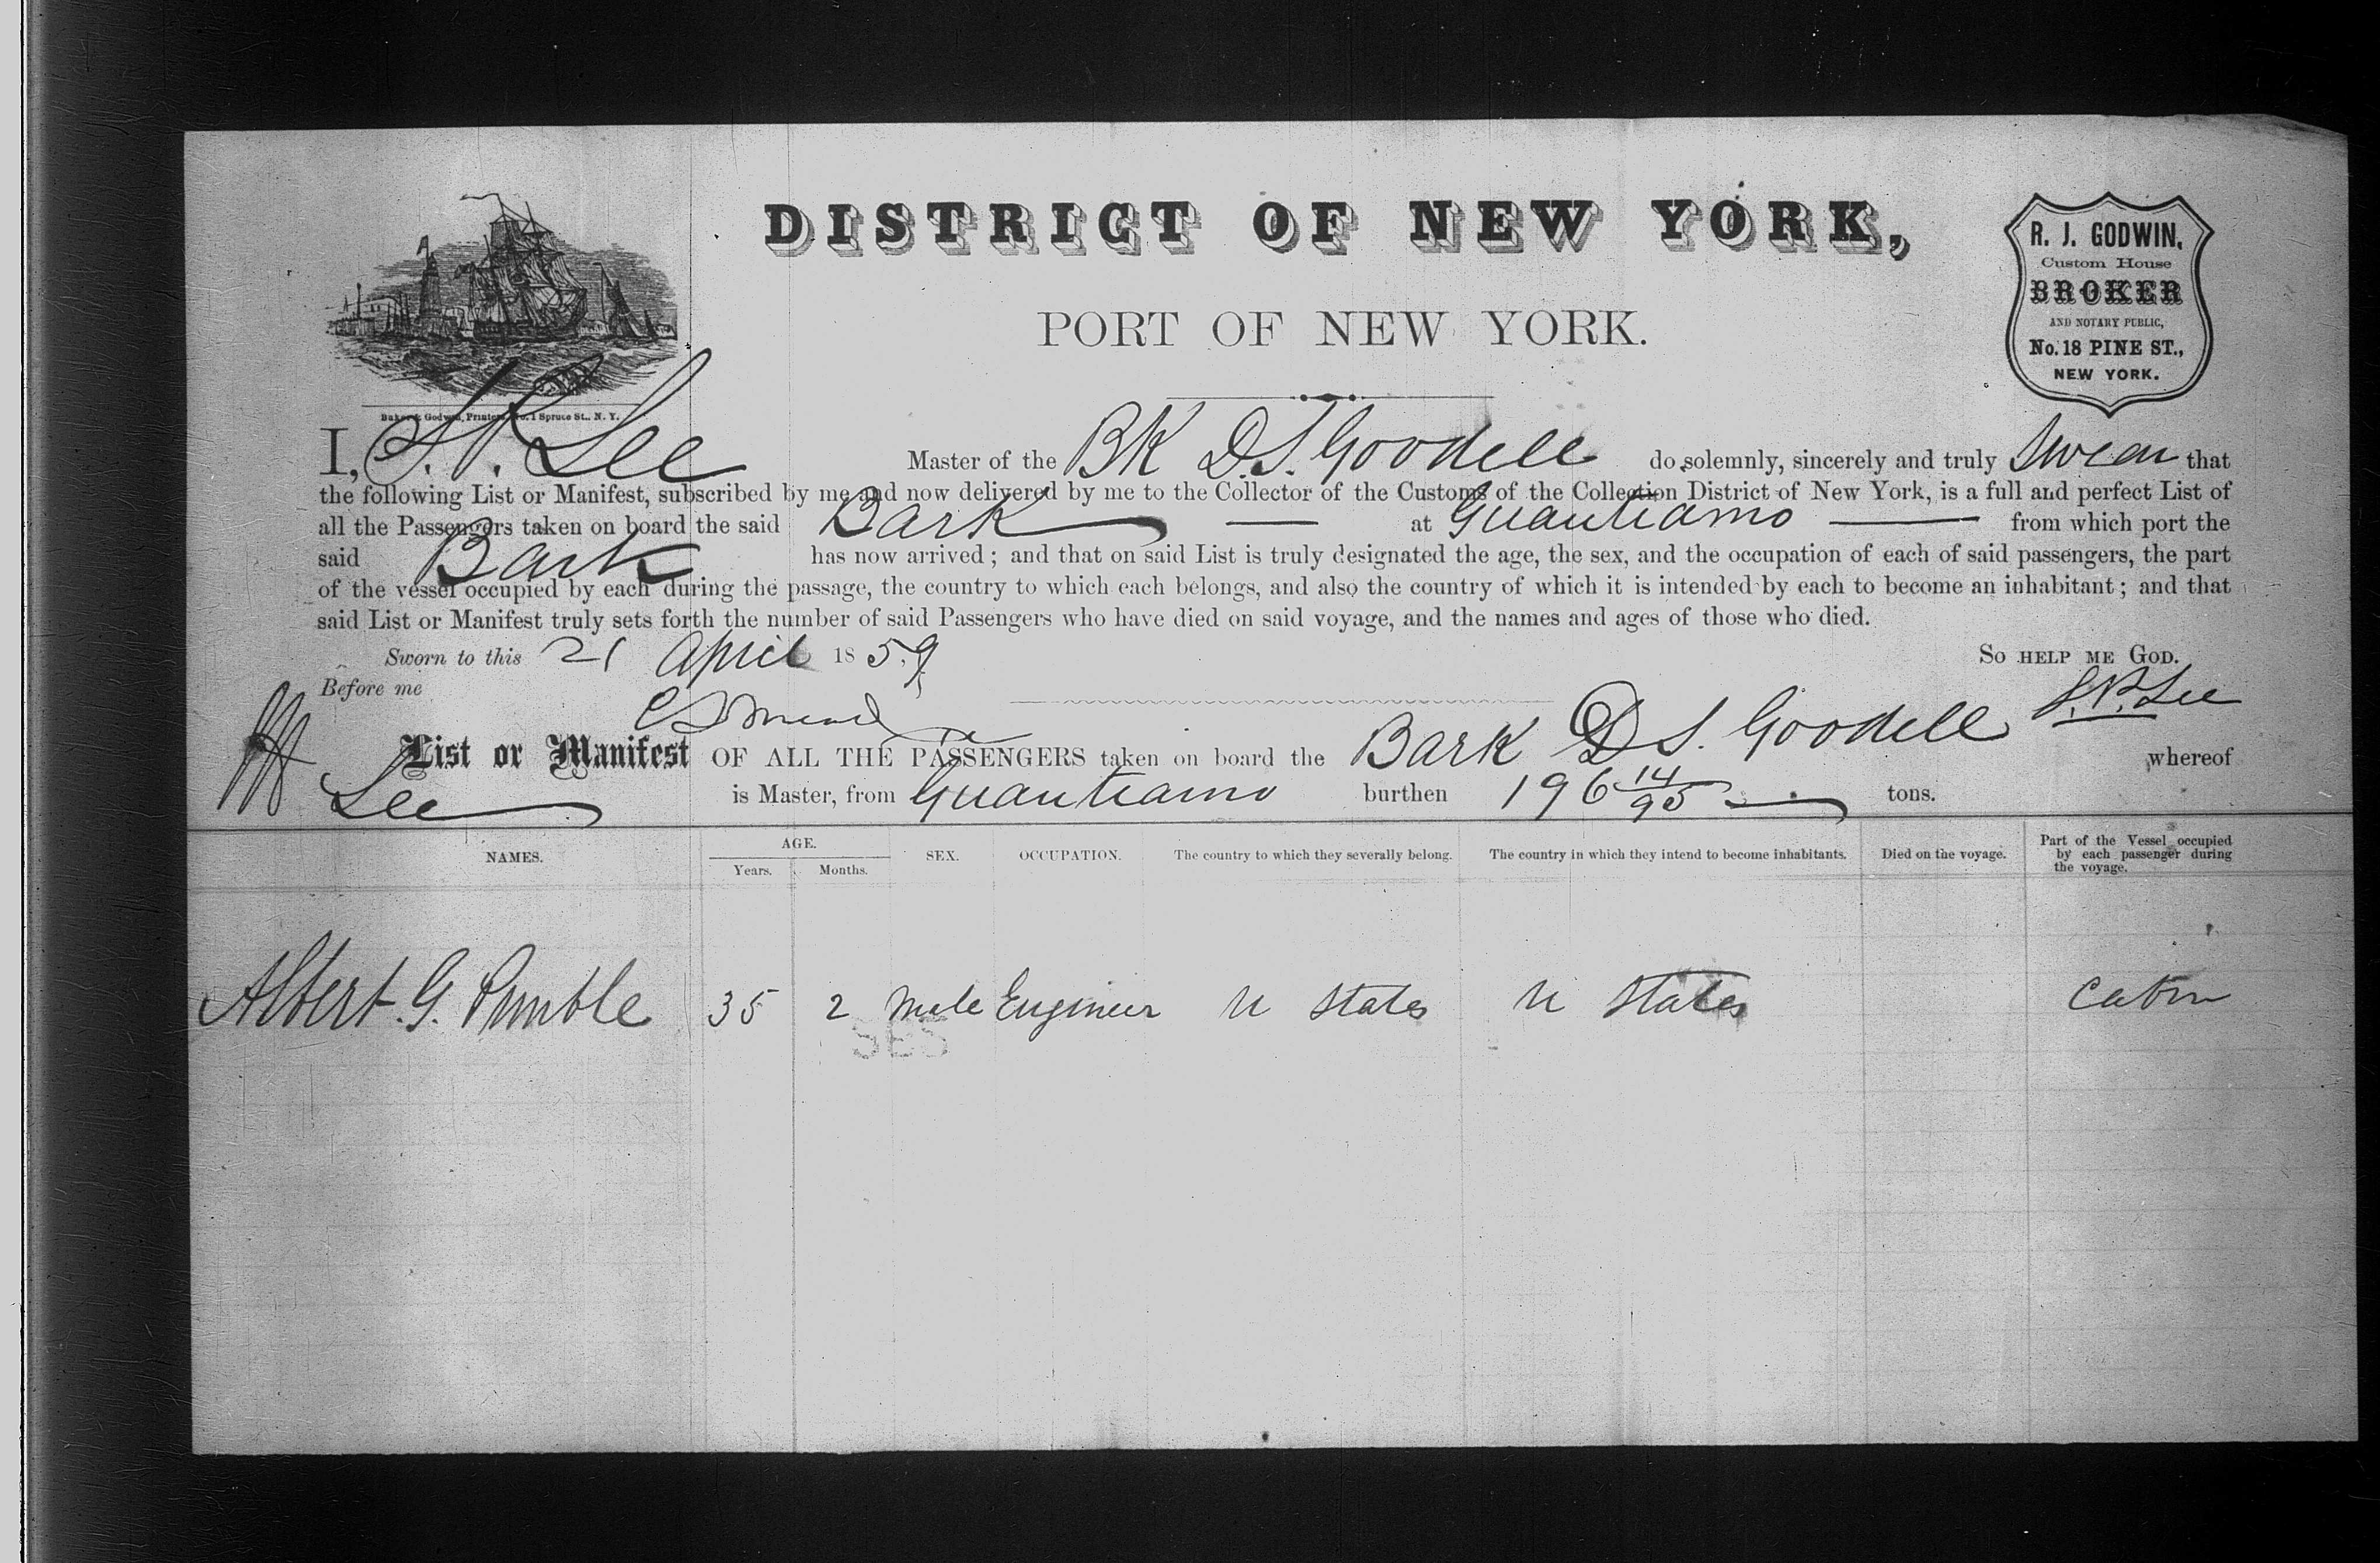 DISTRICT OF NEW YORK,
PORT OF NEW YORK.
R. J. GODWIN,
Custom House
BROKER
AND NOTARY PUBLIC,
No. 18 PINE ST.,
NEW YORK.
Baker & Godwin, Printers, No. 1 Spruce St., N. Y.
I, Lee Master of the BK D.S. Goodell do solemnly, sincerely and truly swear that
the following List or Manifest, subscribed by me and now delivered by me to the Collector of the Customs of the Collection District of New York, is a full and perfect List of
all the Passengers taken on board the said Bark at Guantiamo from which port the
said Bark has now arrived; and that on said List is truly designated the age, the sex, and the occupation of each of said passengers, the part
of the vessel occupied by each during the passage, the country to which each belongs, and also the country of which it is intended by each to become an inhabitant; and that
said List or Manifest truly sets forth the number of said Passengers who have died on said voyage, and the names and ages of those who died.
Sworn to this 21 April 1859 So HELP ME GOD.
Before me Lee
List or Manifest OF ALL THE PASSENGERS taken on board the Bark D S. Goodell whereof
Lee is Master, from Guantiamo burthen 196 14/95 tons.
NAMES. AGE. Years. Months. SEX. OCCUPATION. The country to which they severally belong. The country in which they intend to become inhabitants. Died on the voyage. Part of the Vessel occupied by each passenger during the voyage.
Albert. G. 35 2 Male Engineer U States U States Cabin